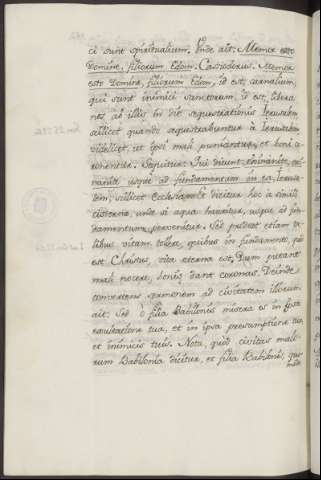 ci sunt spiritualium. Unde ait: Memor esto
Domine, filiorum Edom. Cassiodorus. Memor
esto Domine, filiorum Edom, id est, carnalium,
qui sunt inimici sanctorum, id est, libera
nos ab illis in die
scilicet quando sequestrabuntur à Ierusalem
videlicet, ut ipsi mali puniantur, et boni
. Sequitur: Qui dicunt, exinanite, exi-
nanite usque ad fundamentum in ea, Ierusa-
lem, scilicet Ecclesiam. Et dicitur hoc à simili
cisternæ, unde si aqua hauritur, usque ad fun-
damentum pervenitur. Sed putent etiam ta-
libus vitam tollere, quibus in fundamento, qui
est Christus, vita æterna est. Dum putant
mali nocere, bonis dant coronas. Deinde
convertens sermonem ad civitatem illorum
ait: Sed ô filia Babilonis misera es in ipsa
exultatione tua, et in ipsa presumptione tua
et inimicis tuis. Nota, quod civitas malo-
rum Babilonia dicitur, et filia Babilonis, quo-